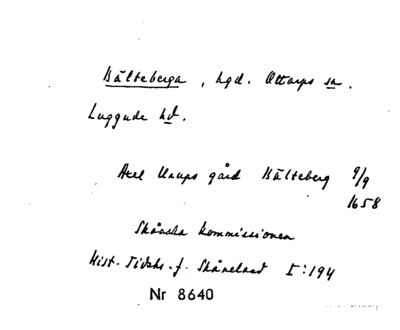 Bälteberga, hgd. Ottarps sn.
Luggude hd.
Axel Urups gård Bälteberg 9/9
1658
Skånska kommissionen
Hist. Tidskr. f. Skåneland I:194
Nr 8640